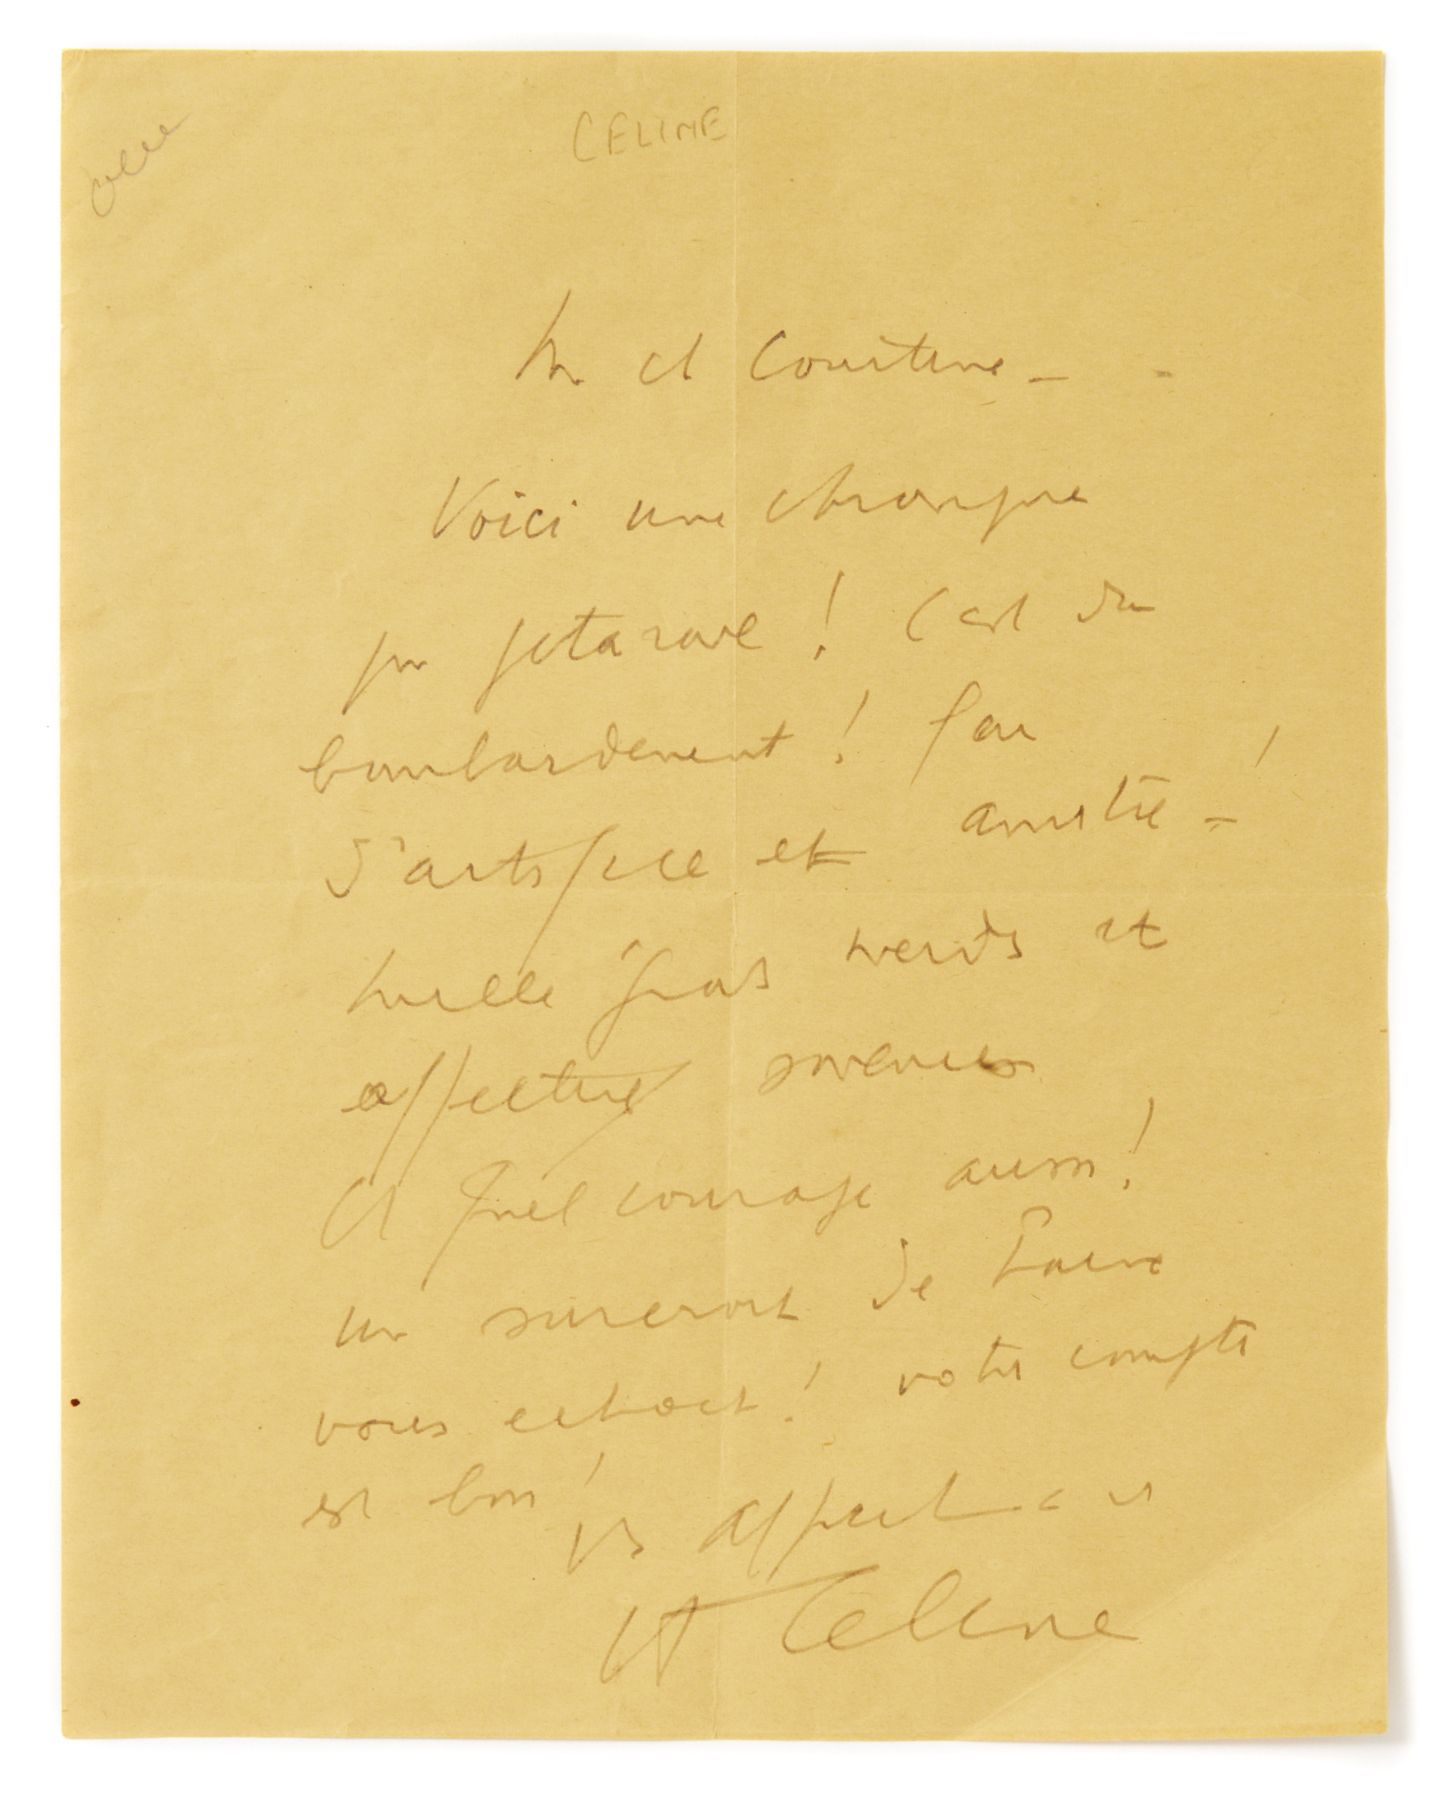 CELINE
Mr et Courtine –
Voici une chronique
qui petarade ! C'est du
bombardement ! feu
d'artifice et amitié – !
mille grands mercis et
affectueux souvenirs
Et quel courage aussi !
un surcroît de haine
vous echoit ! votre compte
est bon !
Vs affect
LF Celine